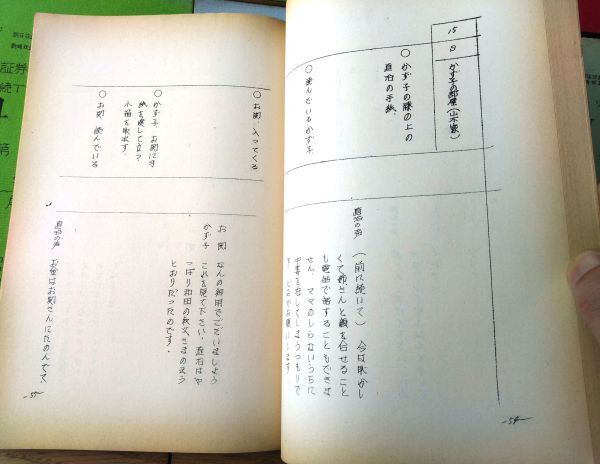 15
8
かず子の部屋(山本家)
○かず子の膝の上の
直治の手紙、
○読んでいるかず子
直治の声
(前に続いて) 今は恥かし
くて姉さんと顔を合せること
も電話で話すこともできま
せん、ママのしらないうちに
-54-
○お関 入ってくる
○かず子 お関に手
紙を渡して立つ
小箱を取出す、
○お関 読んでいる
お関 なんの御用でございましょう
かず子 これを見て下さい、直治はや
っぱり和田の叔父さまのいう
とおりだったのです、
直治の声 お金はお関さんにたのんで、
-55-
証券
第